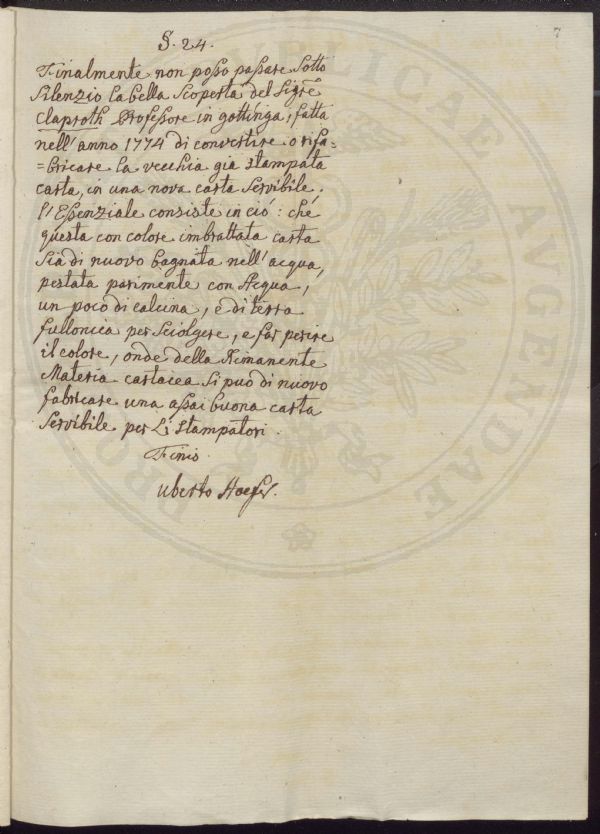 7
§. 24.
Finalmente non posso passare sotto
silenzio la bella scoperta del Sigre
Claproth Professore in gottinga, fatta
nell'anno 1774 di convertire o rifa=
=bricare la vecchia già stampata
carta, in una nova carta servibile.
l'Essenziale consiste in ciò: che
questa con colore imbrattata carta
sia di nuovo bagnata nell'acqua,
pestata parimente con Acqua,
un poco di calcina, e di terra
fullonica per sciolgere, e far perire
il colore, onde della Rimanente
Materia cartacea si può di nuovo
fabricare una assai buona carta
servibile per Li stampatori.
Finis.
Uberto Hoefer.
PUBLICAE
AVGENDAE